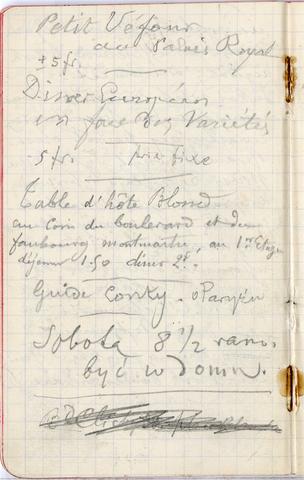 Petit Véfour
au Palais Royal
± 5 fr.
Diner Européen
en face des Variétés
5 fr. prix fixe
Table d'hôte Blond
au coin du boulevard et du
faubourg montmartre, au 1er Etage
déjeuner 1.50 diner 2f.
Guide Conty.
Sobota 8 1/2 rano.
być w domu.